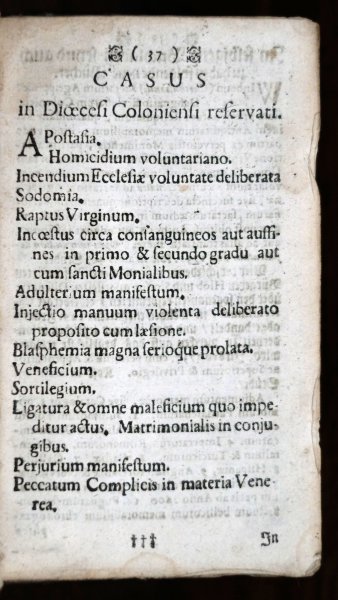 (37)
CASUS
in Diœcesi Coloniensi reservati.
APostasia.
Homicidium voluntariano.
Incendium Ecclesiæ voluntate deliberata
Sodomia.
Raptus Virginum.
Incœstus circa consanguineos aut auffi-
nes in primo & secundo gradu aut
cum sancti Monialibus.
Adulterium manifestum.
Injectio manuum violenta deliberato
proposito cum læsione.
Blasphemia magna serioque prolata.
Veneficium.
Sortilegium.
Ligatura & omne maleficium quo impe-
ditur actus. Matrimonialis in conju-
gibus.
Perjurium manifestum.
Peccatum Complicis in materia Vene-
rea.
††† In